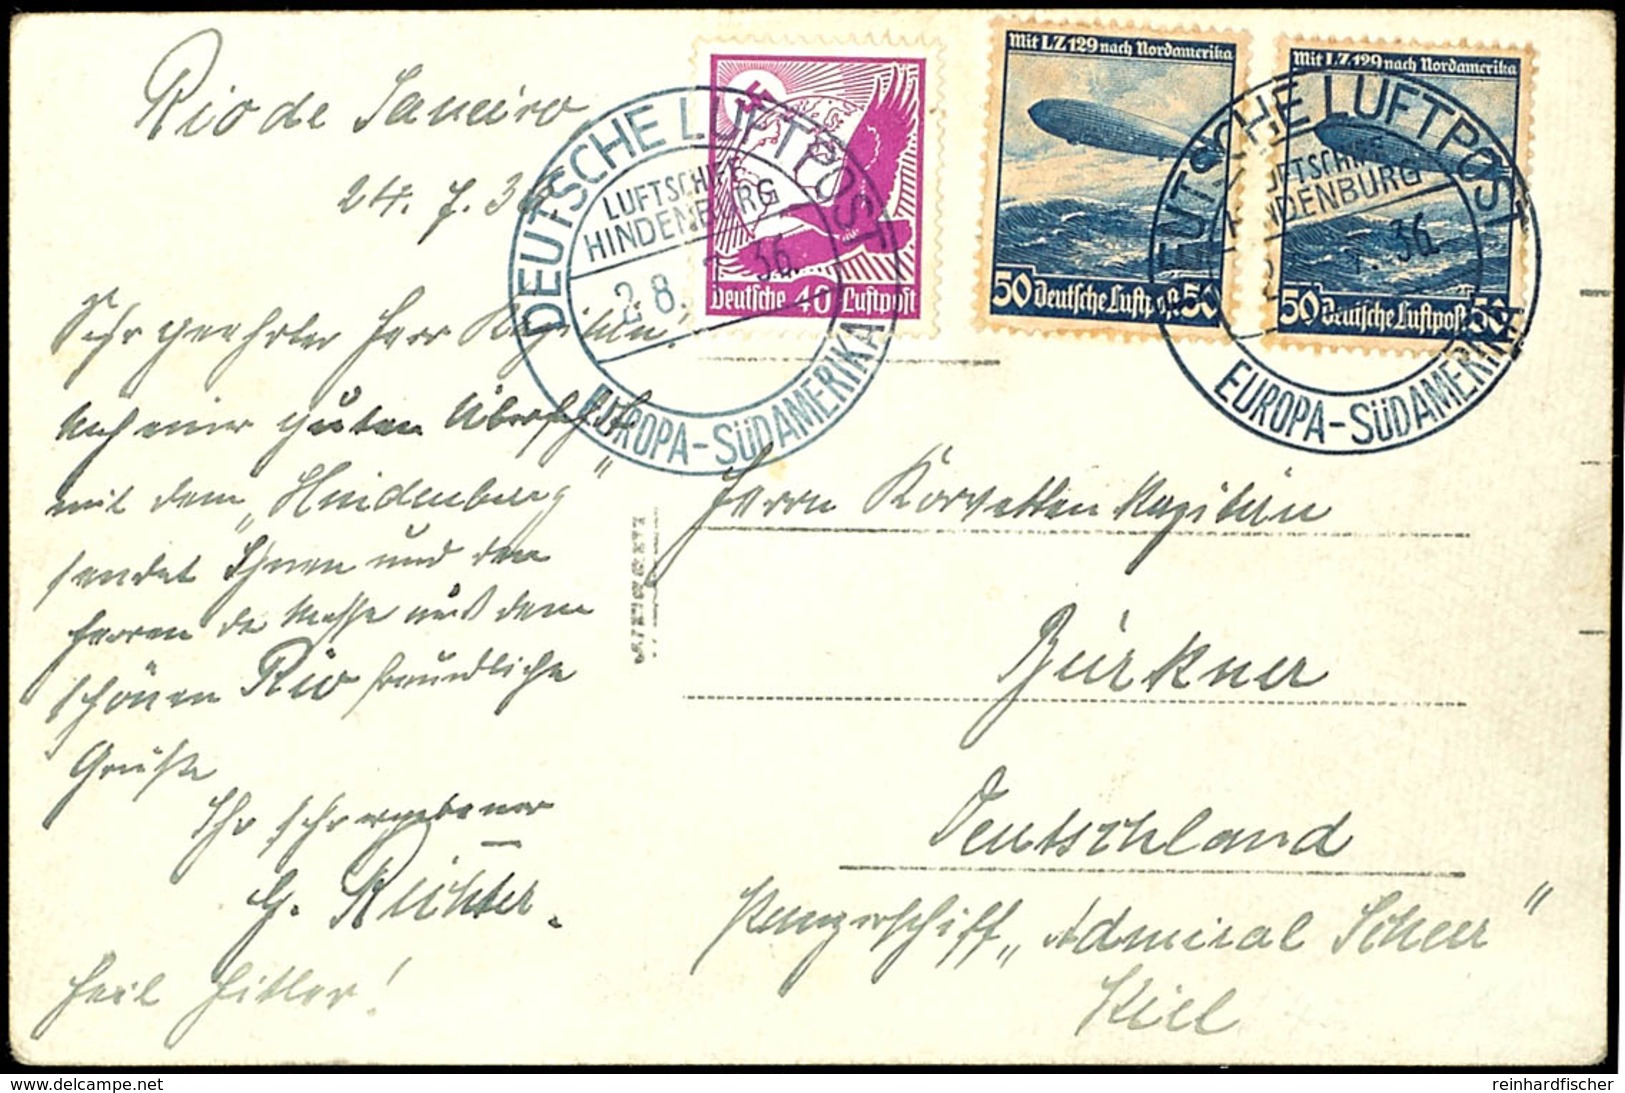 Rio de Janeiro
24. 7. 36
Sehr geehrter Herr Kapitän.
Nach einer guten Überfahrt
mit dem „Hindenburg"
sendet Ihnen und den
Herren der Messe aus dem
schönen Rio freundliche
Grüße
Ihr sehr ergebener
G. Richter.
Heil Hitler!
Deutsche 40 Luftpost
Mit LZ 129 nach Nordamerika
50 Deutsche Luftpost 50
Mit LZ 129 nach Nordamerika
50 Deutsche Luftpost 50
DEUTSCHE LUFTPOST
LUFTSCHIFF
HINDENBURG
28. 7. 36.
EUROPA-SÜDAMERIKA
DEUTSCHE LUFTPOST
LUFTSCHIFF
HINDENBURG
7. 36.
EUROPA-SÜDAMERIKA
Herrn Korvetten Kapitän
Bürkner
Deutschland
Panzerschiff „Admiral Scheer"
Kiel
(c) www.delcampe.net
reinhardfischer